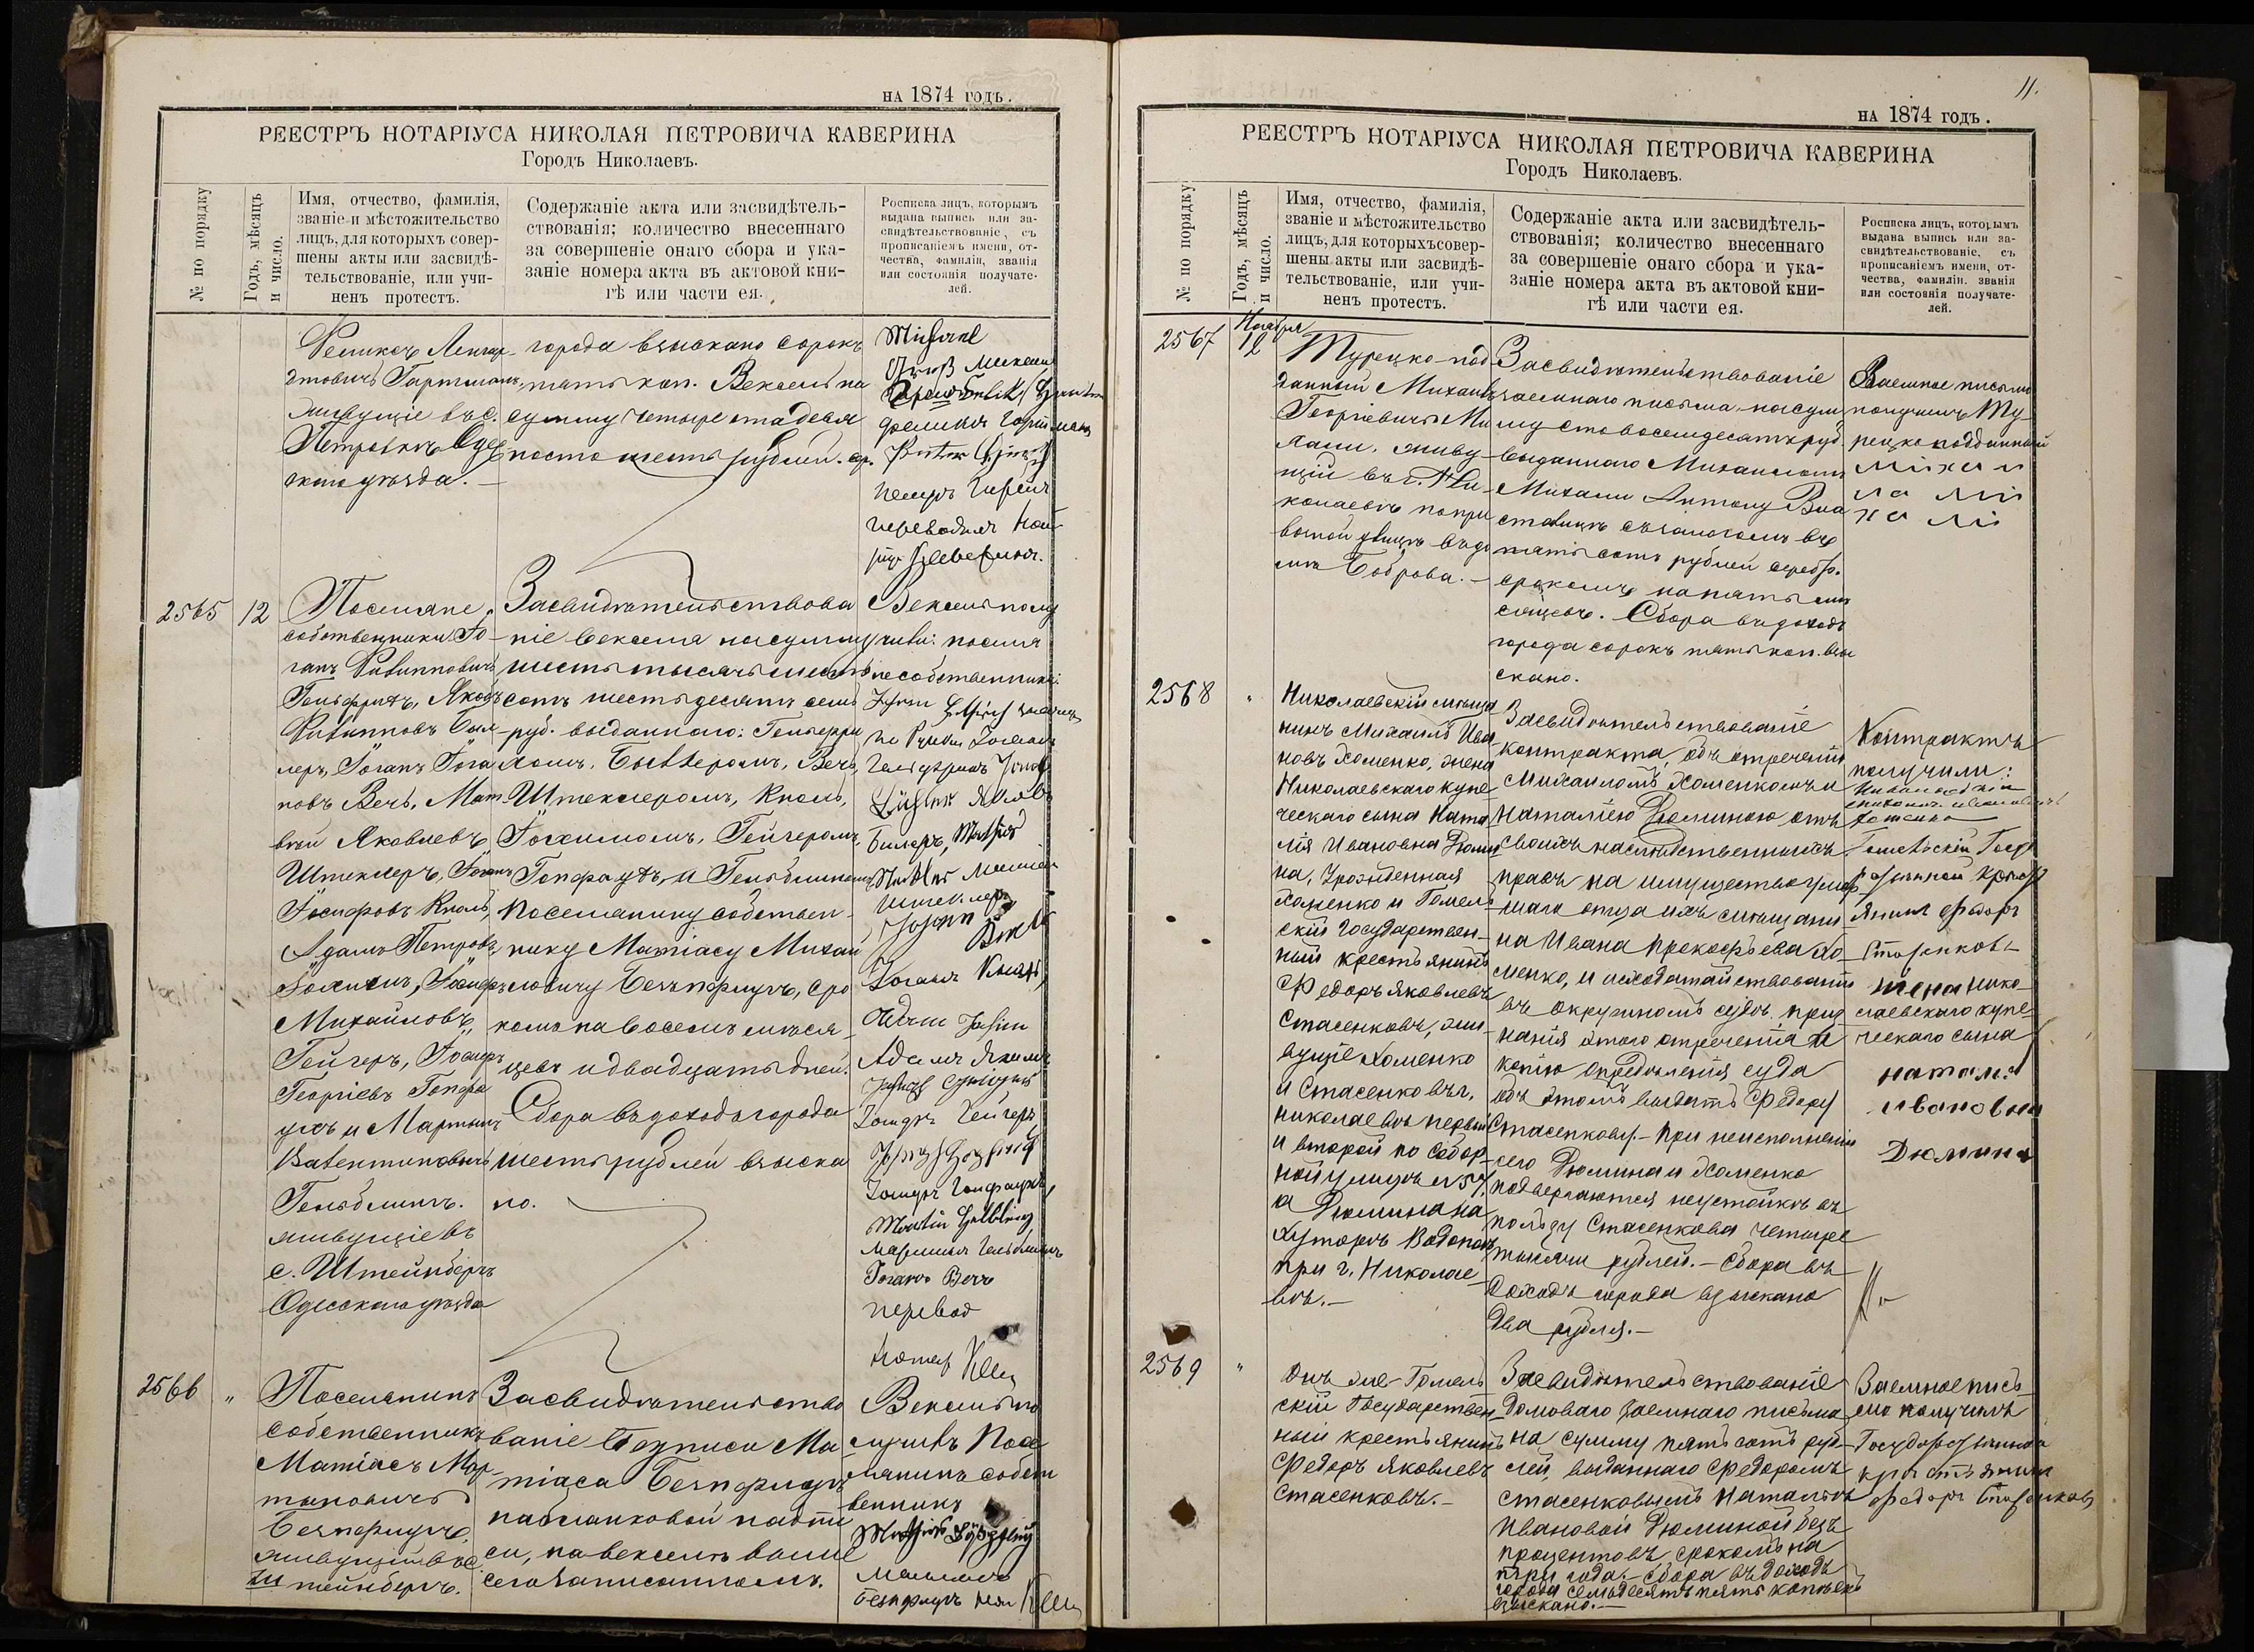 НА 1874 ГОДЪ.
РЕЕСТРЪ НОТАРІУСА НИКОЛАЯ ПЕТРОВИЧА КАВЕРИНА
Городъ Николаевъ.
№ по порядку
Годъ, мѣсяцъ
и число.
Имя, отчество, фамилія,
званіе и мѣстожительство
лицъ, для которыхъ совер-
шены акты или засвидѣ-
тельствованіе, или учи-
ненъ протестъ.
Содержаніе акта или засвидѣтель-
ствованія; количество внесеннаго
за совершеніе онаго сбора и ука-
заніе номера акта въ актовой кни-
гѣ или части ея.
Росписка лицъ, которымъ
выдана выпись или за-
свидѣтельствованіе, съ
прописаніемъ имени, от-
чества, фамиліи, званія
или состоянія получате-
лей.
Феликсъ
Гартманъ,
живущіе въ с.
Петровкѣ Одес
скаго уѣзда.
города взыскано сорокъ
пять коп. Вексель на
сумму четыреста девя
носто шесть рублей. ср.
Феликсъ Гартманъ
переводилъ
2565
12
Поселяне,
собственники Іо-
ганъ Филипповичъ
Гельфрихъ, Яковъ
Филипповъ
леръ, Іоганъ Іога
новъ Бечъ, Мат
вѣй Яковлевъ
Штеклеръ, Іоганъ
Іосифовъ Кноль,
Адамъ Петровъ
Іохимъ, Іосифъ
Михайловъ
Гейгеръ, Іосифъ
Георгіевъ Гопфа
уфъ и Мартынъ
Валентиновичъ
Гельблингъ.
живущіе въ
с. Штейнбергъ
Одесскаго уѣзда
Засвидѣтельствова
ніе векселя на сумму
шесть тысячъ шесть
сотъ шестьдесятъ семь
руб. выданнаго: Гельфри
хомъ, Бихлеромъ, Бечъ,
Штеклеромъ, Кноль,
Іохимомъ, Гейгеромъ,
Гопфауфъ, и Гельблингомъ
поселянину собствен-
нику Матіасу Михай
ловичу Безпфлугъ, сро
комъ на восемь мѣся
цевъ и двадцать дней.
Сбора въ доходъ города
шесть рублей взыска
но.
Вексель полу
чили: поселя
не собственники:
Гельфрихъ
Яковъ
Іоганъ Кноль
Адамъ Яхимъ
Іосифъ Гейгеръ
Іосифъ Гопфауфъ
Martin Helbling
Мартынъ Гельблингъ
Іоганъ Бечъ
перевод
2566
"
Поселянинъ
собственникъ
Матіасъ Мар
тыновичъ
Безпфлугъ,
живущій въ с.
Штейнбергъ.
Засвидѣтельство
ваніе подписи Ма
тіаса Безпфлугъ
на бланковой надпи
си, на векселѣ выше
сего записанномъ.
Вексель по
лучивъ Посе
лянинъ собст
венникъ
Безпфлугъ
11.
НА 1874 ГОДЪ.
РЕЕСТРЪ НОТАРІУСА НИКОЛАЯ ПЕТРОВИЧА КАВЕРИНА
Городъ Николаевъ.
№ по порядку
Годъ, мѣсяцъ
и число.
Имя, отчество, фамилія,
званіе и мѣстожительство
лицъ, для которыхъ совер-
шены акты или засвидѣ-
тельствованіе, или учи-
ненъ протестъ.
Содержаніе акта или засвидѣтель-
ствованія; количество внесеннаго
за совершеніе онаго сбора и ука-
заніе номера акта въ актовой кни-
гѣ или части ея.
Росписка лицъ, которымъ
выдана выпись или за-
свидѣтельствованіе, съ
прописаніемъ имени, от-
чества, фамиліи, званія
или состоянія получате-
лей.
2567
Ноября
12
Турецко-под
данный Михаилъ
Георгіевичъ Ми
хали, живу-
щій въ г. Ни-
колаевѣ по при
вѣтной улицѣ въ до
мѣ Боброва.-
Засвидѣтельствованіе
заемнаго письма на сум
му сто восемьдесятъ руб.
выданнаго Михаиломъ
Михали Антону Вла
стовицъ съ залогомъ въ
пятьсотъ рублей серебр.
срокомъ на пять мѣ
сяцевъ. Сбора въ доходъ
города сорокъ пять коп. взы
скано.
Заемное письмо
получилъ Ту-
рецко подданный
Міхаи
ла Мі
ха лі
2568
"
Николаевскій мѣща
нинъ Михаилъ Ива
новъ Хоменко, жена
Николаевскаго купе
ческаго сына Ната
лія Ивановна Дюми
на, урожденная
Хоменко и Гомель
скій Государствен-
ный крестьянинъ
Федоръ Яковлевъ
Стасенковъ, жи-
вущіе Хоменко
и Стасенковъ г.
Николаевѣ первый
и второй по Собор-
ной улицѣ № 57,
а Дюмина на
хуторѣ Водопой
при г. Николае
вѣ.-
Засвидѣтельствованіе
контракта, объ отреченіи
Михаиломъ Хоменкомъ и
Наталіею Дюминою отъ
своихъ наслѣдственныхъ
правъ на имущество умер
шаго отца ихъ мѣщани
на Ивана Прокофьева Хо
менко, и исходатайствованіи
въ окружномъ судѣ приз
нанія этого отреченія и
копію опредѣленія суда
объ этомъ выдать Федору
Стасенкову.- При неисполненіи
сего Дюмина и Хоменко
подвергаются неустойкѣ въ
пользу Стасенкова четыре
тысячи рублей.- Сбора въ
доходъ города взыскано
два рубля.-
Контрактъ
получили:
Хоменко
Гомельскій Госу
дарственный крестья
янинъ Федоръ
Стасенковъ
жена нико-
лаевскаго купе
ческаго сына
натали
ивановна
Дюмина
2569
"
Онъ же Гомель
скій Государствен
ный крестьянинъ
Федоръ Яковлевъ
Стасенковъ.-
Засвидѣтельствованіе
домоваго заемнаго письма
на сумму пять сотъ руб-
лей, выданнаго Федоромъ
Стасенковымъ Наталіи
Ивановой Дюминой безъ
процентовъ, срокомъ на
три года.- Сбора въ доходъ
города семьдесятъ пять копѣекъ
взыскано.-
Заемное пись
мо получилъ
Государственный
крестьянин
Федоръ Стасенковъ